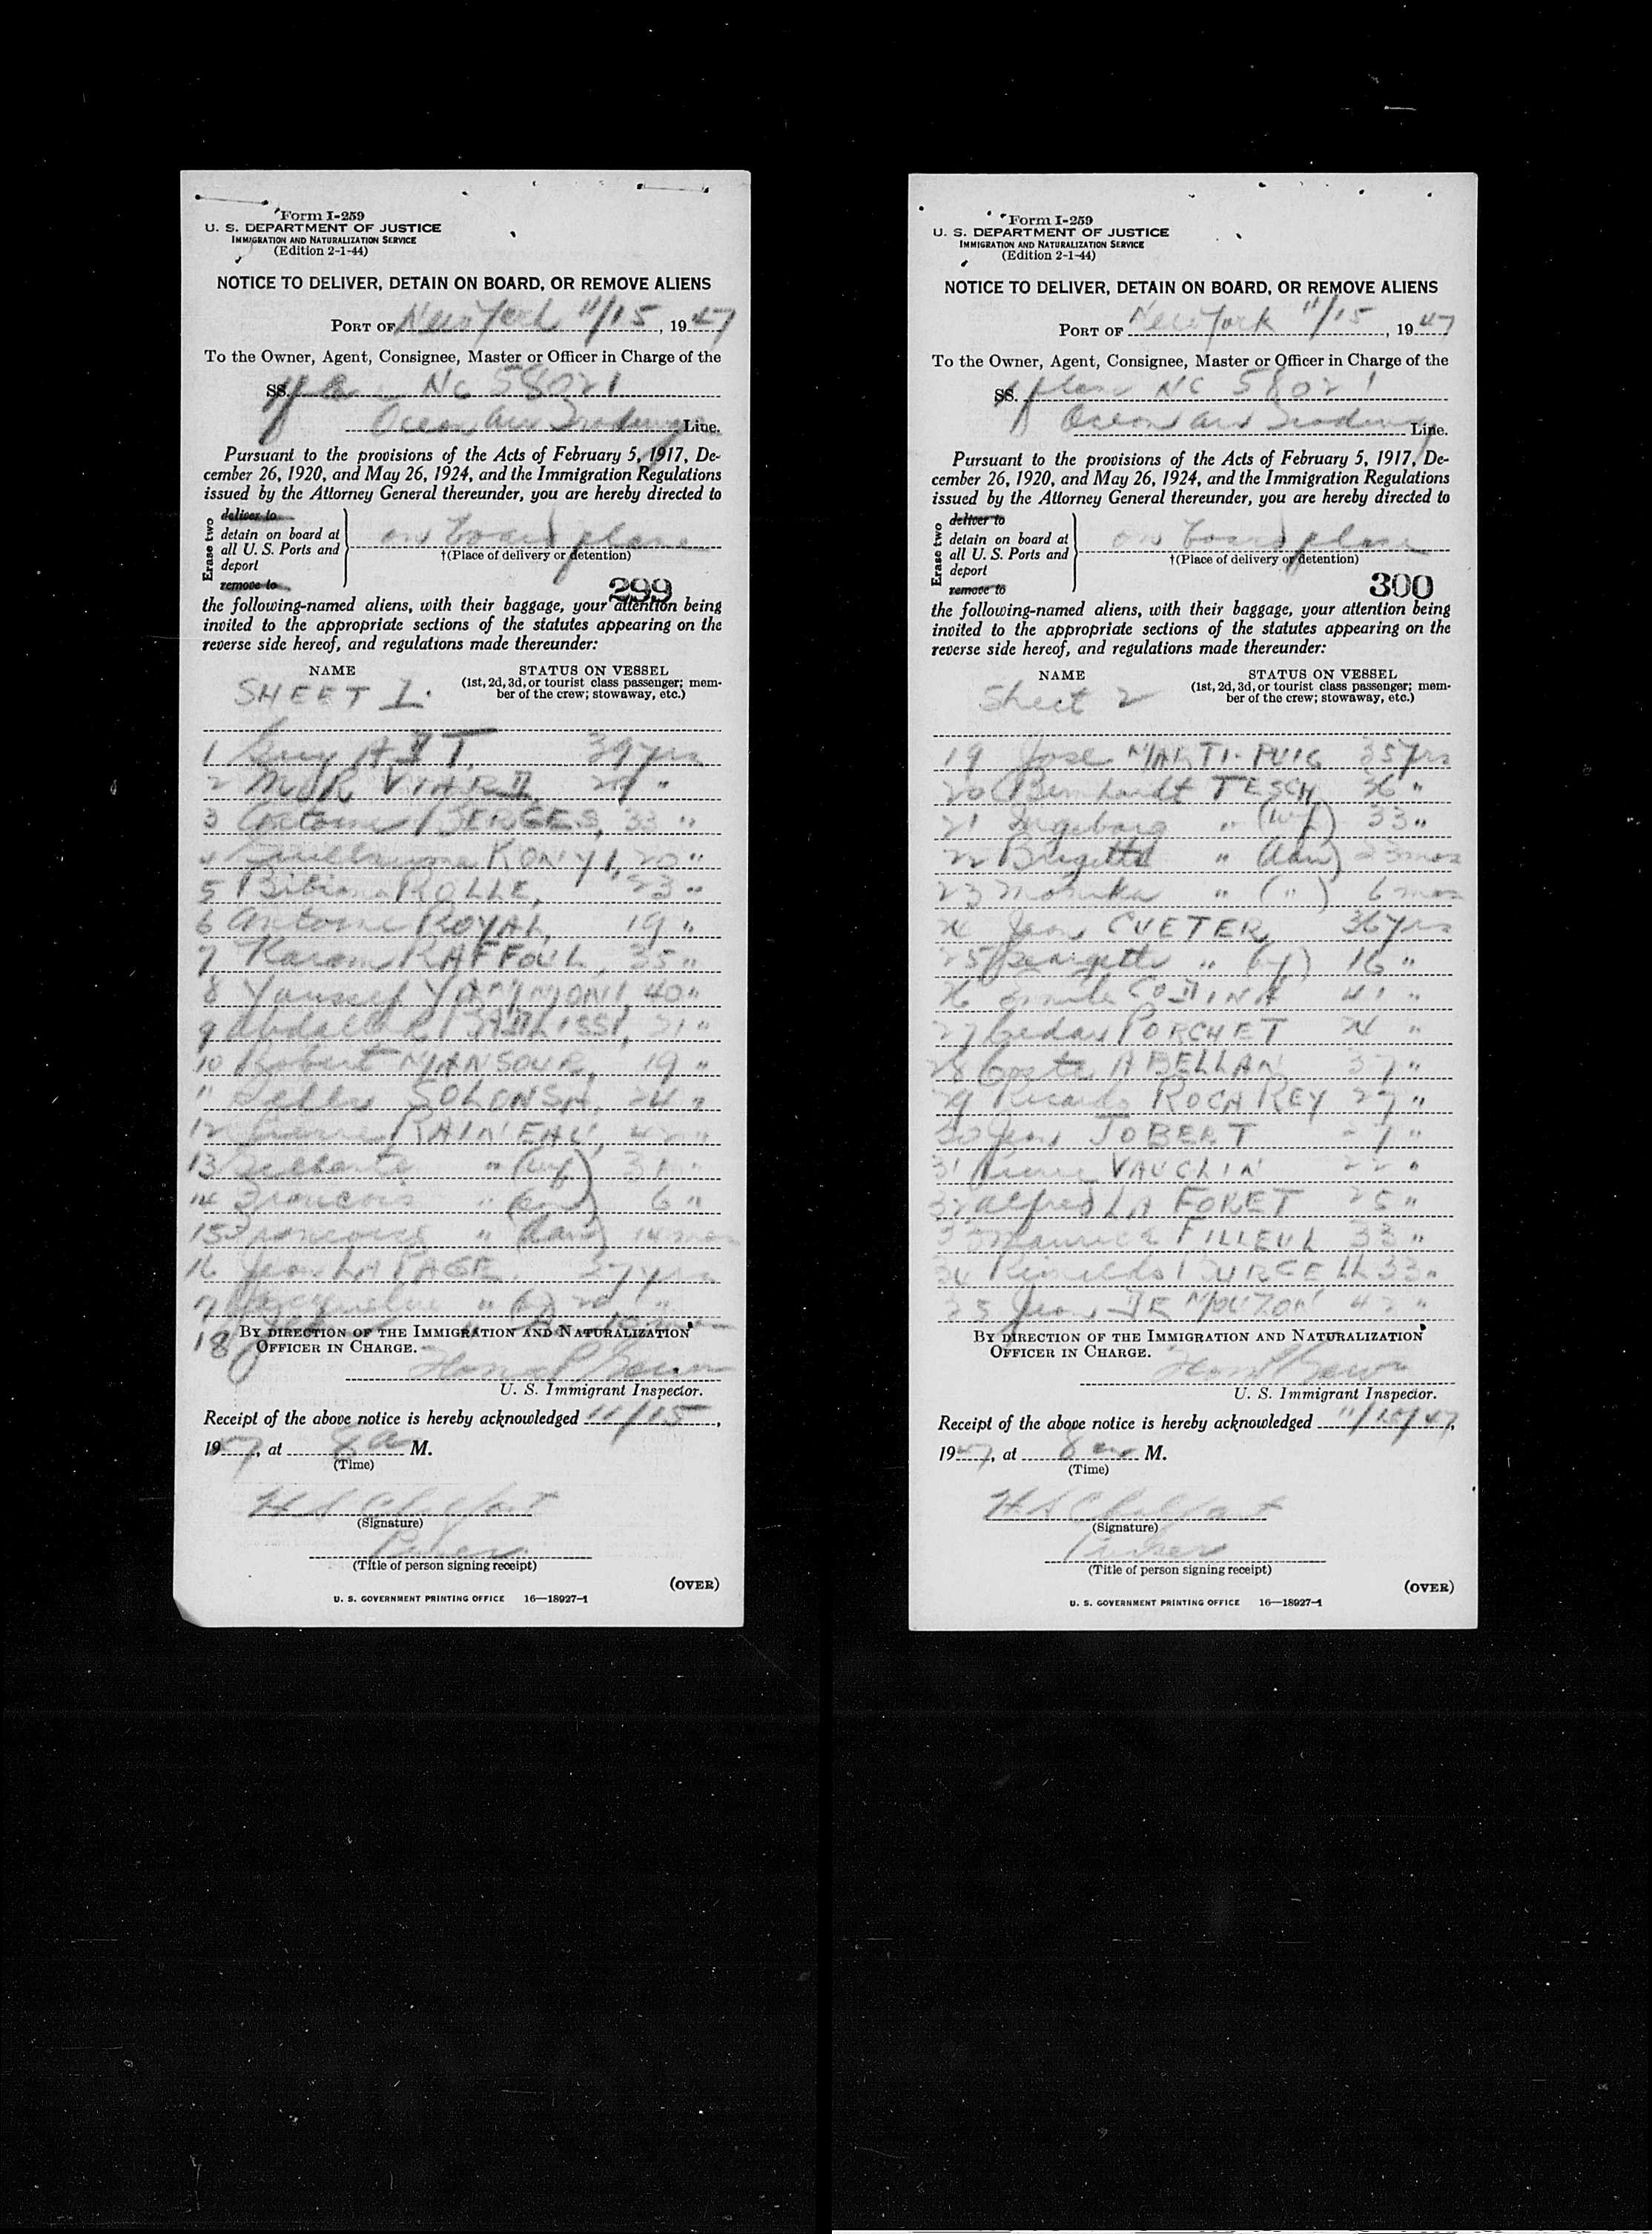 Form I-259
U. S. DEPARTMENT OF JUSTICE
IMMIGRATION AND NATURALIZATION SERVICE
(Edition 2-1-44)
NOTICE TO DELIVER, DETAIN ON BOARD, OR REMOVE ALIENS
PORT OF New York 11/15, 1947
To the Owner, Agent, Consignee, Master or Officer in Charge of the
SS. NC 58021
Ocean Air Tradeways Line.
Pursuant to the provisions of the Acts of February 5, 1917, De-
cember 26, 1920, and May 26, 1924, and the Immigration Regulations
issued by the Attorney General thereunder, you are hereby directed to
Erase two
deliver to
detain on board at
all U. S. Ports and
deport
remove to
on board plane
†(Place of delivery or detention)
299
the following-named aliens, with their baggage, your attention being
invited to the appropriate sections of the statutes appearing on the
reverse side hereof, and regulations made thereunder:
NAME
STATUS ON VESSEL
(1st, 2d, 3d, or tourist class passenger; mem-
ber of the crew; stowaway, etc.)
SHEET 1.
1 Guy 39 yrs
2 VIARD "
3 Antoine BERGES, 33 "
4 Guillaume KONYI, 20 "
5 ROLLE, 23 "
6 Antoine ROYAL, 19 "
7 Karam RAFFOUL, 35 "
8 Youssef 40 "
9 "
10 Robert MANSOUR, 19 "
11 24 "
12 Pierre RAINEAU, 42 "
13 " (wf) "
14 Francois " (son) 6 "
15 Francoise " (dau) 14 mos
16 Jean LAPAGE. 37 yrs
17 " (wf) "
18
BY DIRECTION OF THE IMMIGRATION AND NATURALIZATION
OFFICER IN CHARGE.
U. S. Immigrant Inspector.
Receipt of the above notice is hereby acknowledged 11/15,
1947, at 8 a M.
(Time)
(Signature)
Purser
(Title of person signing receipt)
(OVER)
U. S. GOVERNMENT PRINTING OFFICE 16—18927-1
Form I-259
U. S. DEPARTMENT OF JUSTICE
IMMIGRATION AND NATURALIZATION SERVICE
(Edition 2-1-44)
NOTICE TO DELIVER, DETAIN ON BOARD, OR REMOVE ALIENS
PORT OF New York 11/15, 1947
To the Owner, Agent, Consignee, Master or Officer in Charge of the
SS. plane NC 58021
Ocean Air Tradeways Line.
Pursuant to the provisions of the Acts of February 5, 1917, De-
cember 26, 1920, and May 26, 1924, and the Immigration Regulations
issued by the Attorney General thereunder, you are hereby directed to
Erase two
deliver to
detain on board at
all U. S. Ports and
deport
remove to
on board plane
†(Place of delivery or detention)
300
the following-named aliens, with their baggage, your attention being
invited to the appropriate sections of the statutes appearing on the
reverse side hereof, and regulations made thereunder:
NAME
STATUS ON VESSEL
(1st, 2d, 3d, or tourist class passenger; mem-
ber of the crew; stowaway, etc.)
Sheet 2
19 Jose MARTI-PUIG 35 yrs
20 Bernhardt TESCH 36 "
21 Ingeborg " (wf) 33 "
22 Brigitte " (dau) 23 mos
23 Monika " (") 6 mos
24 Jean CUETER 36 yrs
25 Georgette " (wf) 16 "
26 CODINA 41 "
27 PORCHET 24 "
28 ABELLAN 37 "
29 Ricardo ROCA REY 27 "
30 Jean JOBERT "
31 Pierre VAUCLIN 22 "
32 Alfred LA FORET 25 "
33 Maurice FILLEUL 33 "
34 33 "
35 Jean DE MOUZON 42 "
BY DIRECTION OF THE IMMIGRATION AND NATURALIZATION
OFFICER IN CHARGE.
U. S. Immigrant Inspector.
Receipt of the above notice is hereby acknowledged 11/15/47,
1947, at 8 am M.
(Time)
(Signature)
Purser
(Title of person signing receipt)
(OVER)
U. S. GOVERNMENT PRINTING OFFICE 16—18927-1